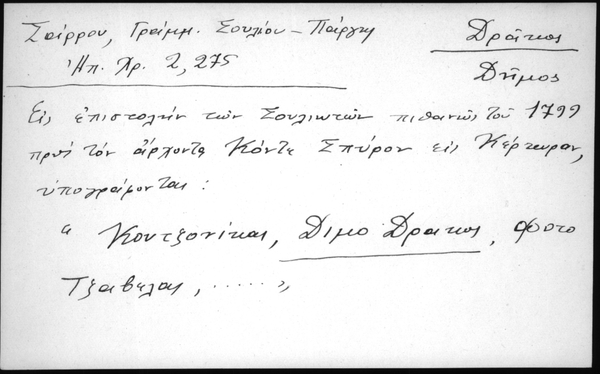 Σάρρου, Γράμμ. Σουλίου - Πάργης
Ἠπ. Χρ. 2, 275
Δράκος
Δῆμος
Εἰς ἐπιστολήν τῶν Σουλιωτῶν πιθανῶς τοῦ 1799
πρός τόν ἄρχοντα Κόντε Σπύρον εἰς Κέρκυραν,
ὑπογράφονται :
" Κουτζονίκας, Διμο Δρακος, Φοτο
Τζαβελας, ...... "